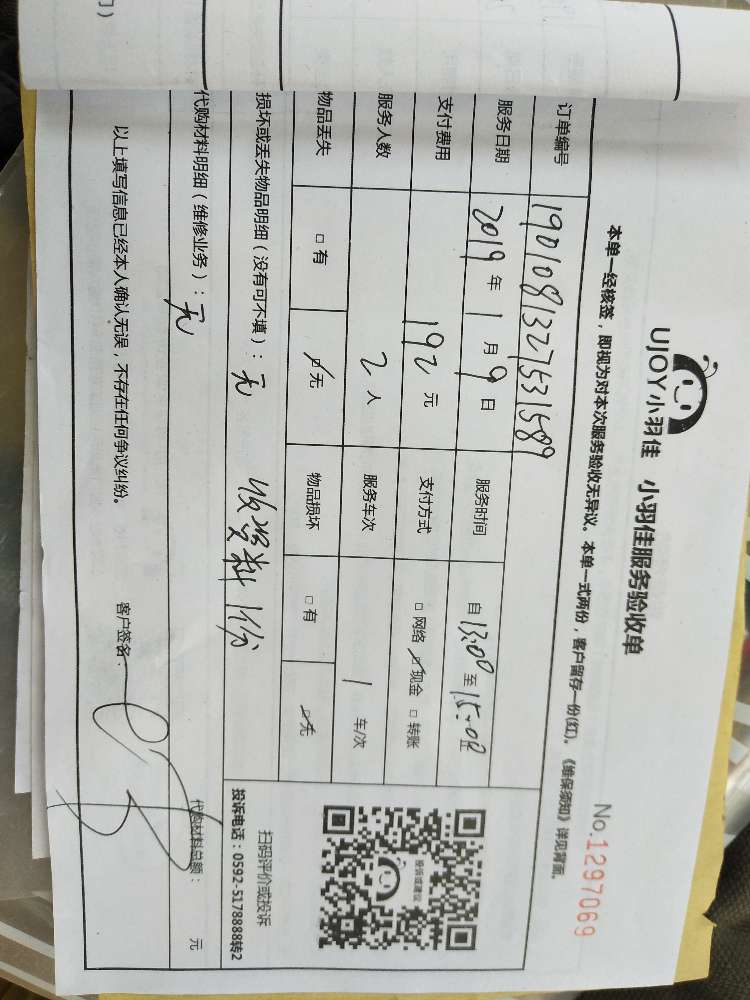 UJOY小羽佳 小羽佳服务验收单
No.1297069
本单一经核签，即视为对本次服务验收无异议。本单一式两份，客户留存一份(红)。《维保须知》详见背面。
订单编号 1901081327531589
服务日期 2019年1月9日 服务时间 自13:00至15:00止
支付费用 192元 支付方式 □网络 ☑现金 □转账
服务人数 2人 服务车次 1车/次
物品丢失 □有 ☑无 物品损坏 □有 ☑无
损坏或丢失物品明细（没有可不填）：无 收资料1份
代购材料明细（维修业务）：无
代购材料总额： 元
以上填写信息已经本人确认无误，不存在任何争议纠纷。 客户签名：
投诉或建议
扫码评价或投诉
投诉电话：0592-5178888转2